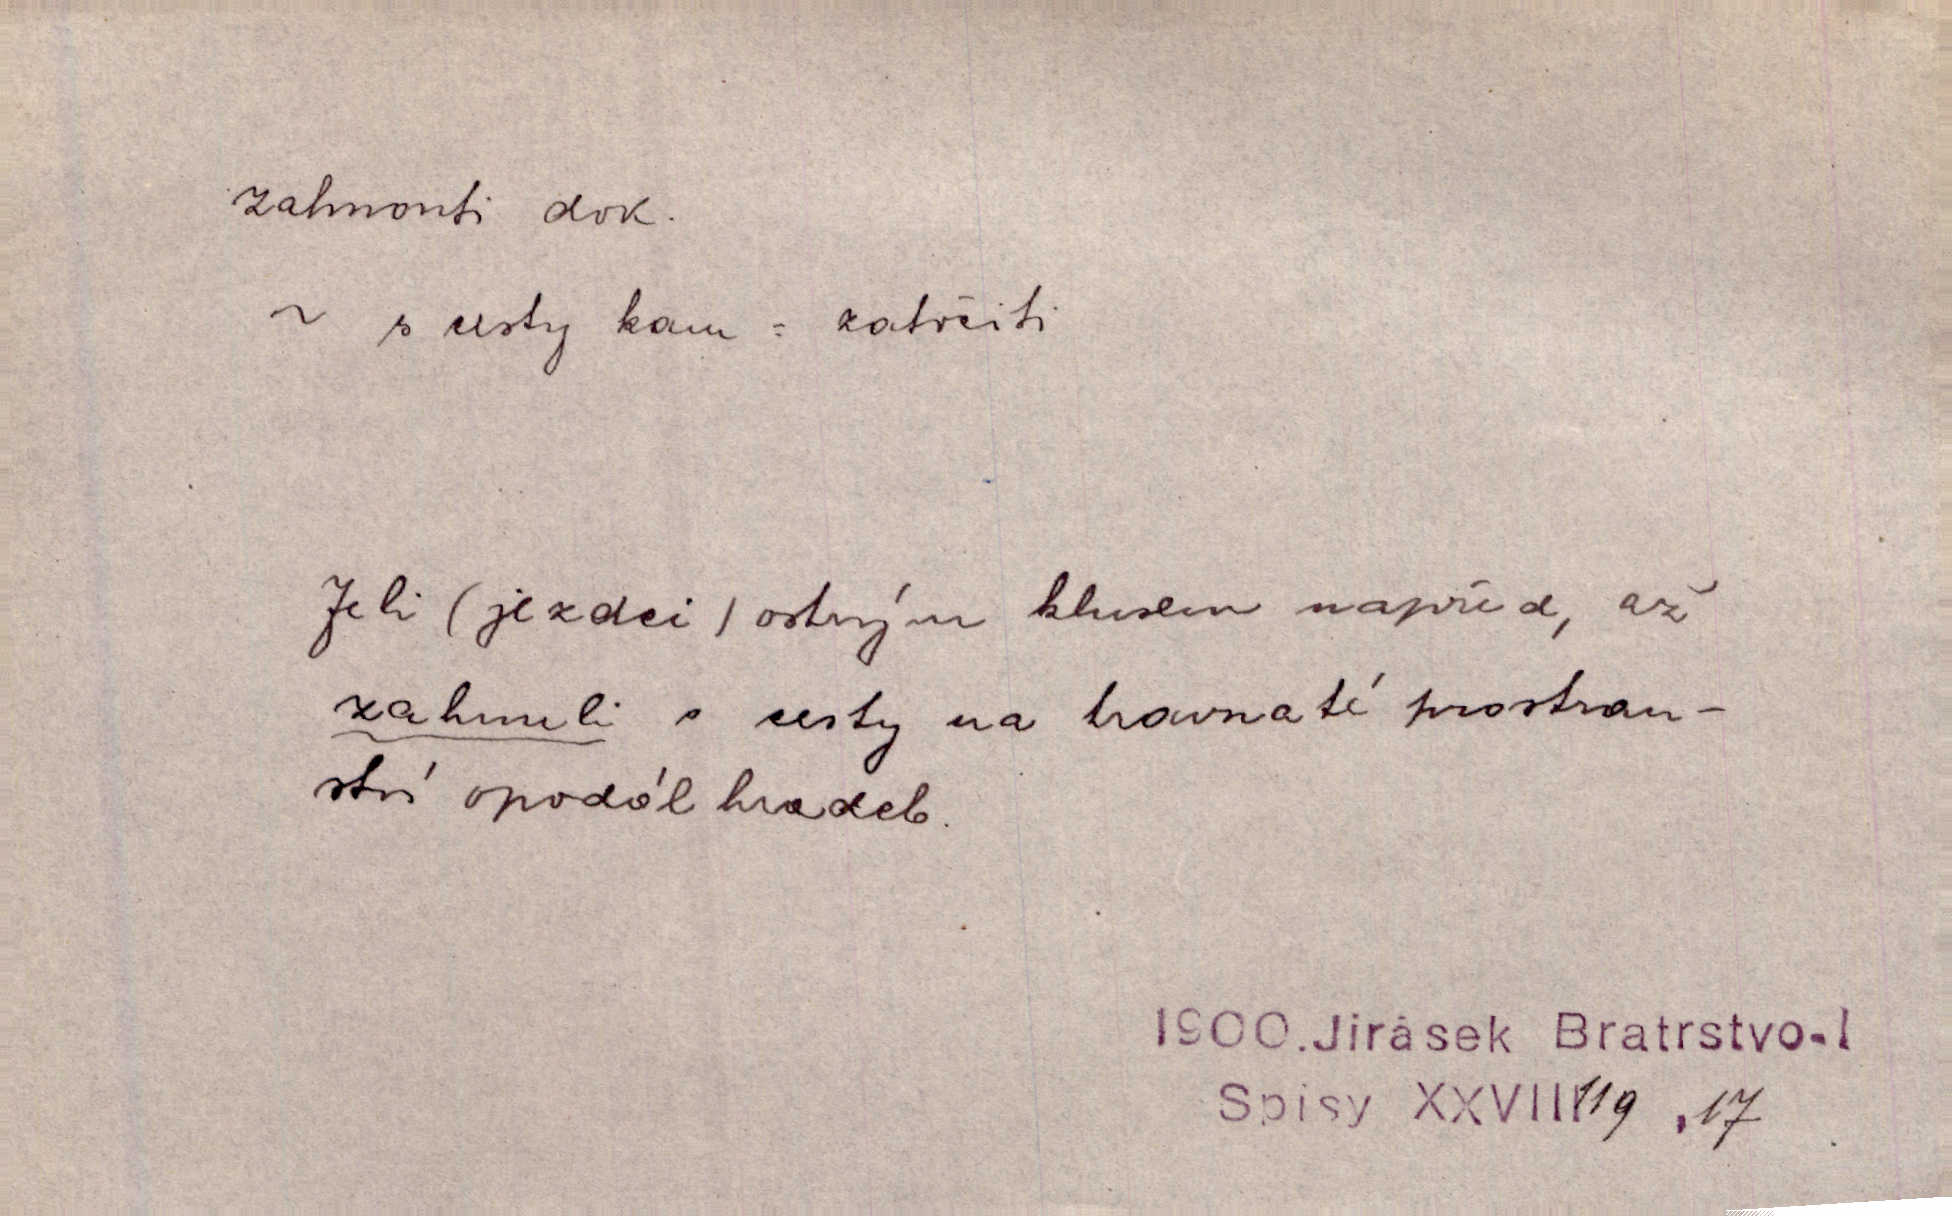 zahnouti dok.
~ s cesty kam = zatočiti
Jeli (jezdci) ostrým klusem napřed, až
zahnuli s cesty na travnaté prostran-
ství opodál hradeb.
1900. Jirásek Bratrstvo-I
Spisy XXVIII 119 , 17